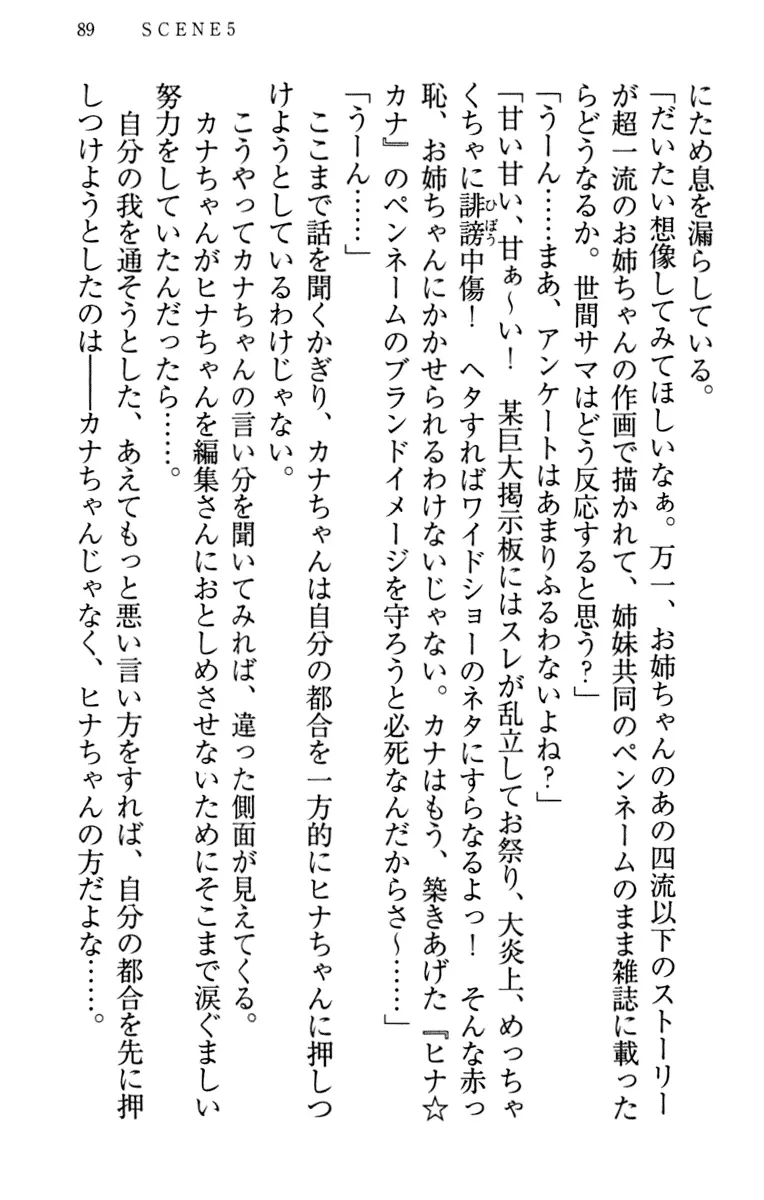 89　SCENE5
にため息を漏らしている。
「だいたい想像してみてほしいなぁ。万一、お姉ちゃんのあの四流以下のストーリー
が超一流のお姉ちゃんの作画で描かれて、姉妹共同のペンネームのまま雑誌に載った
らどうなるか。世間サマはどう反応すると思う？」
「うーん……まあ、アンケートはあまりふるわないよね？」
「甘い甘い、甘ぁ～い！　某巨大掲示板にはスレが乱立してお祭り、大炎上、めっちゃ
くちゃに誹謗中傷！　ヘタすればワイドショーのネタにすらなるよっ！　そんな赤っ
恥、お姉ちゃんにかかせられるわけないじゃない。カナはもう、築きあげた『ヒナ☆
カナ』のペンネームのブランドイメージを守ろうと必死なんだからさ～……」
「うーん……」
　ここまで話を聞くかぎり、カナちゃんは自分の都合を一方的にヒナちゃんに押しつ
けようとしているわけじゃない。
　こうやってカナちゃんの言い分を聞いてみれば、違った側面が見えてくる。
　カナちゃんがヒナちゃんを編集さんにおとしめさせないためにそこまで涙ぐましい
努力をしていたんだったら……。
　自分の我を通そうとした、あえてもっと悪い言い方をすれば、自分の都合を先に押
しつけようとしたのは――カナちゃんじゃなく、ヒナちゃんの方だよな……。